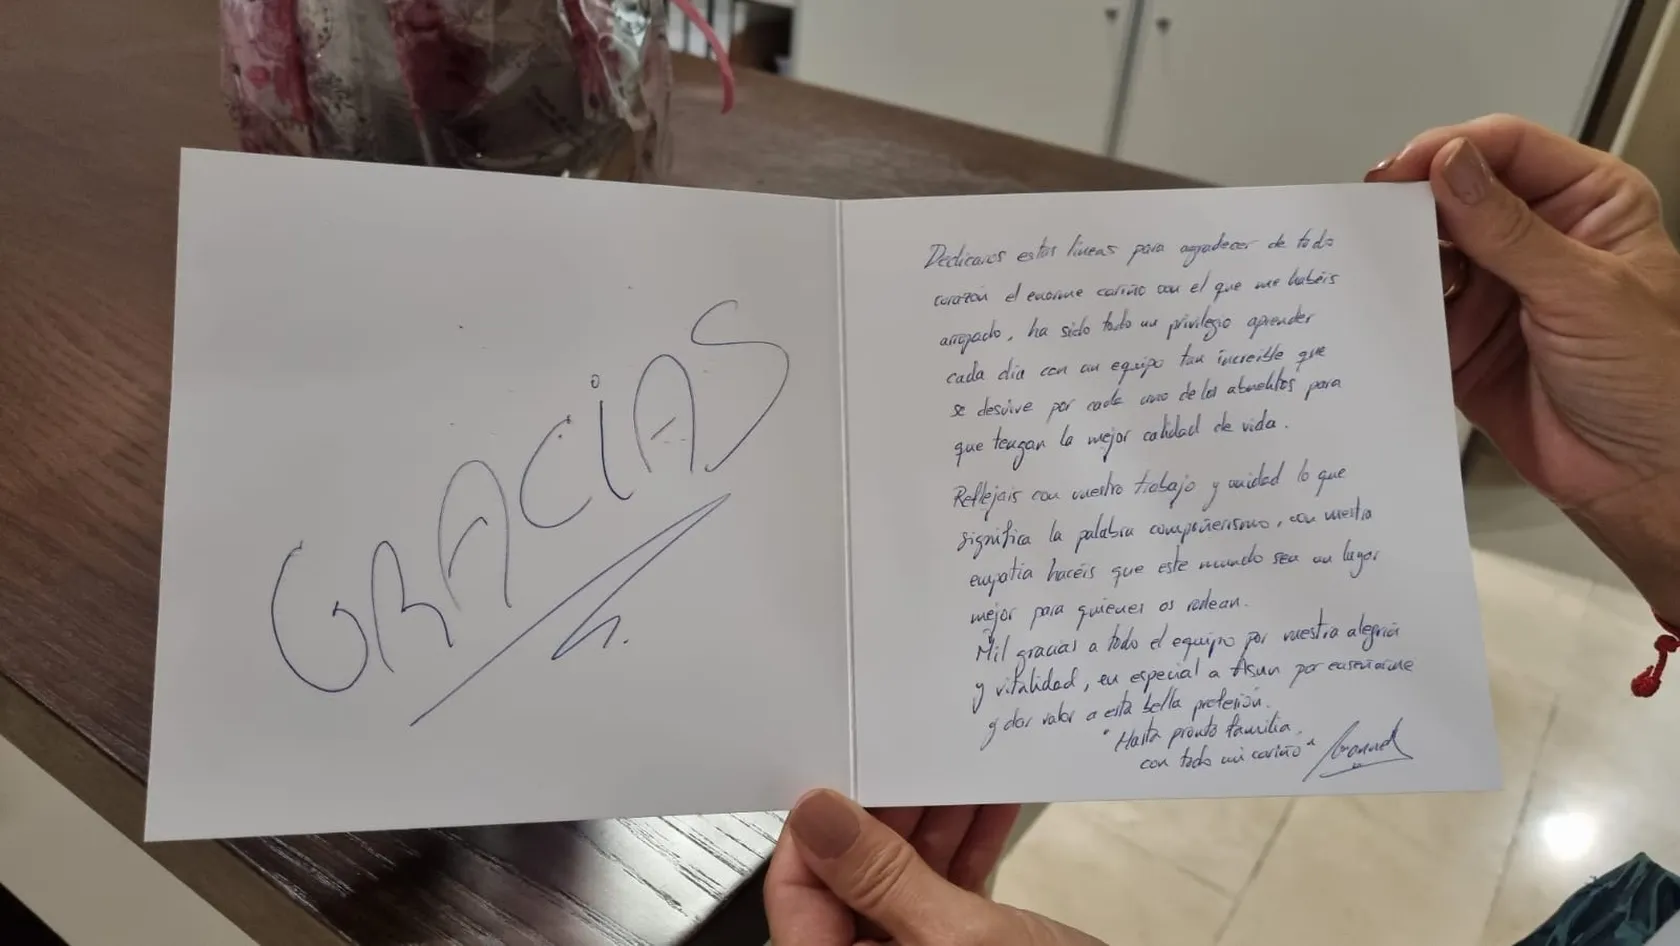 GRACIAS
Dedicaros estas líneas para agradecer de todo
corazón el enorme cariño con el que me habéis
arropado, ha sido todo un privilegio aprender
cada día con un equipo tan increíble que
se desvive por cada uno de los abuelitos para
que tengan la mejor calidad de vida.
Reflejais con vuestro trabajo y unidad lo que
significa la palabra compañerismo, con vuestra
empatía hacéis que este mundo sea un lugar
mejor para quienes os rodean.
Mil gracias a todo el equipo por vuestra alegría
y vitalidad, en especial a Asun por enseñarme
y dar valor a esta bella profesión.
"Hasta pronto familia
con todo mi cariño"